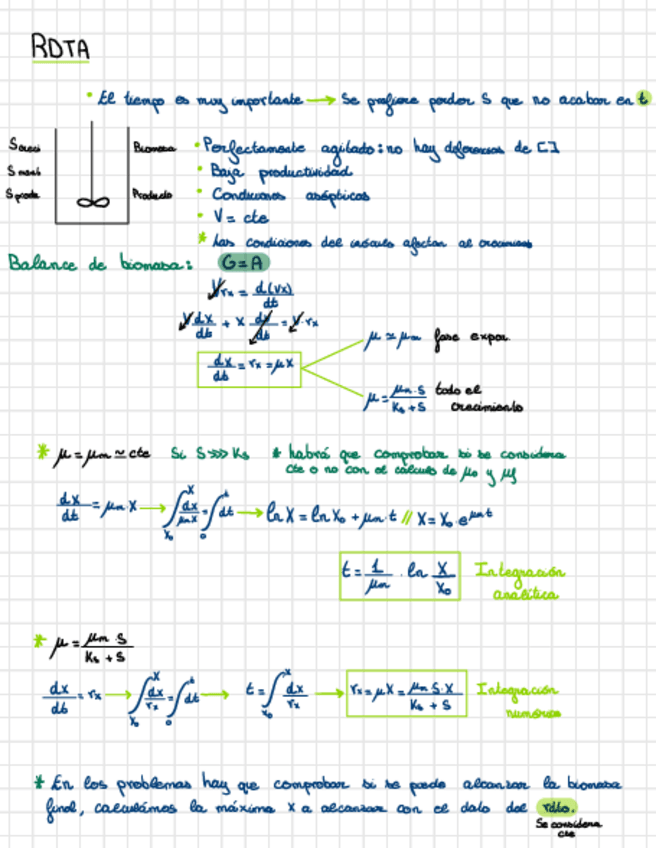 RDTA
• El tiempo es muy importante → Se prefiere perder S que no acabar en t
Screci Biomasa
S mant
S prodto Producto
• Perfectamente agitado: no hay diferencias de [ ]
• Baja productividad
• Condiciones asépticas
• V = cte
* Las condiciones del inóculo afectan al crecimiento
Balance de biomasa: G=A
V rx = d(Vx)/dt
V dx/dt + x dv/dt = V·rx
dx/dt = rx = μX
μ ≃ μm fase expon.
μ = μm·S/(Ks+S) todo el
crecimiento
* μ = μm ≃ cte Si S>>> Ks * habrá que comprobar si se considera
cte o no con el cálculo de μo y μf
dX/dt = μm X → ∫x₀^X dx/μmX = ∫0^t dt → ln X = ln X₀ + μm·t // X = X₀·e^μmt
t = 1/μm · ln X/X₀ Integración
analítica
* μ = μm S/(Ks + S)
dx/dt = rx → ∫x₀^X dx/rx = ∫0^t dt → t = ∫x₀^X dx/rx → rx = μX = μm S·X/(Ks + S) Integración
numérica
* En los problemas hay que comprobar si se puede alcanzar la biomasa
final, calculamos la máxima x a alcanzar con el dato del rdto.
Se considera
cte